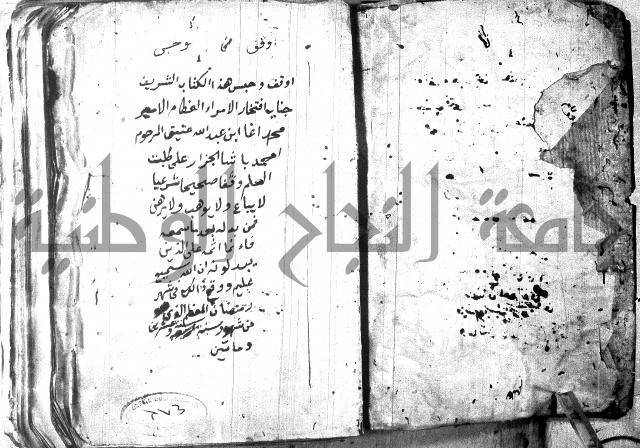 اوقف وحبس
اوقف وحبس هذا الكتاب الشريف
جناب افتخار الامراء العظام الامير
محمد اغا ابن عبد الله عتيق المرحوم
احمد باشا الجزار على طلبة
العلم وقفا صحيحا شرعيا
لا يباع ولا يوهب ولا يرهن
فمن بدله بعد ما سمعه
فانما اثمه على الذين
يبدلونه ان الله سميع
عليم ووقع ذلك في شهر
رمضان المعظم الذي هو
من شهور سنة
وماتين
٢٧٣
جامعة النجاح الوطنية